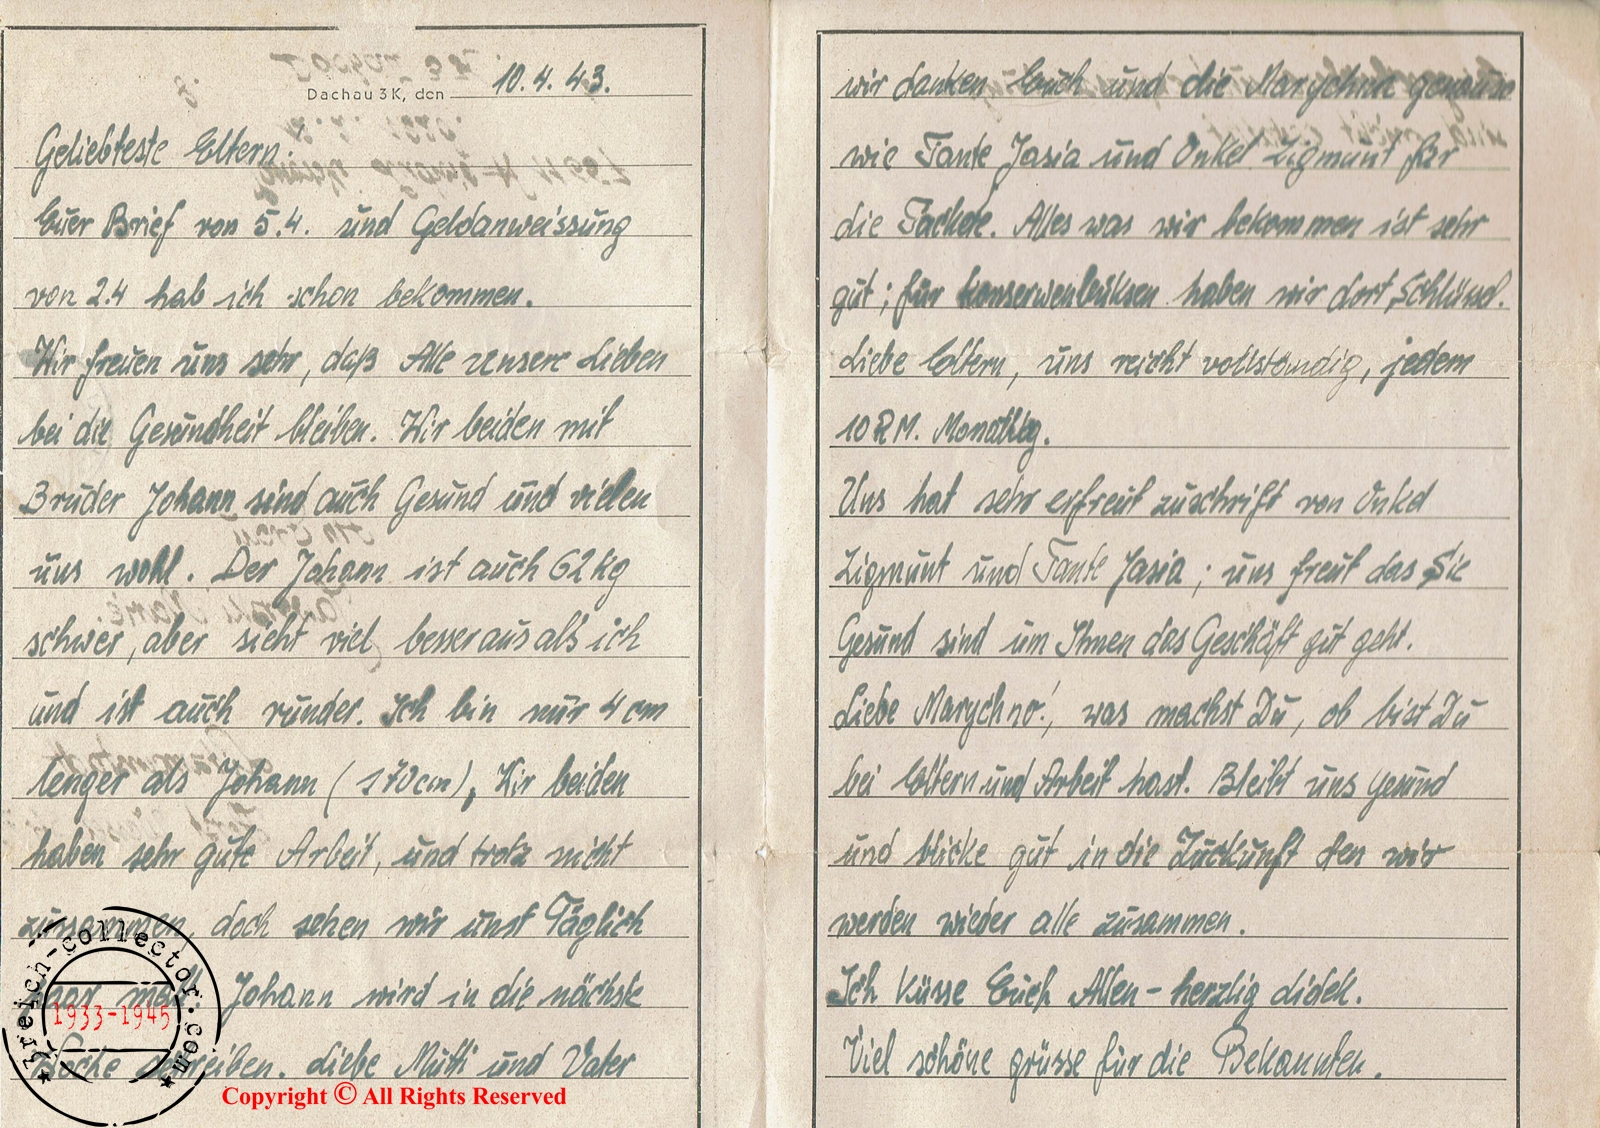 Dachau 3K, den 10.4.43.
Geliebteste Eltern!
Euer Brief von 5.4. und Geldanweissung
von 2.4 hab ich schon bekommen.
Wir freuen uns sehr, daß Alle unsere Lieben
bei die Gesundheit bleiben. Wir beiden mit
Bruder Johann sind auch Gesund und vielen
uns wohl. Der Johann ist auch 62 kg
schwer, aber sieht viel besser aus als ich
und ist auch runder. Ich bin nur 4 cm
lenger als Johann (170 cm), Wir beiden
haben sehr gute Arbeit, und trotz nicht
zusammen, doch sehen wir unst Täglich
paar mall. Johann wird in die nächste
Woche schreiben. Liebe Mutti und Vater
wir danken Euch und die Marychna genause
wie Tante Jasia und Onkel Zigmunt für
die Packete. Alles was wir bekommen ist sehr
gut; für konserwenbüksen haben wir dort Schlüssel.
Liebe Eltern, uns reicht vollständig, jedem
10 RM. Monatlig.
Uns hat sehr erfreut zuschrift von Onkel
Zigmunt und Tante Jasia; uns freut das Sie
Gesund sind um Ihnen das Geschäft gut geht.
Liebe Marychno!, was machst Du, ob bist Du
bei Eltern und Arbeit hast. Bleibt uns Gesund
und blicke gut in die Zuckunft den wir
werden wieder alle zusammen.
Ich Küsse Euch Allen - herzlig Lidek.
Viel schöne grüsse für die Bekannten.
3reich-collector.com
1933-1945
Copyright © All Rights Reserved